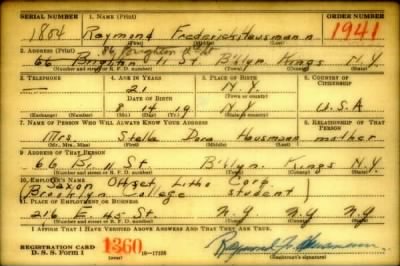 SERIAL NUMBER 1. NAME (Print) ORDER NUMBER
1804 Raymond Frederick Hausmann 1941
(First) (Middle) (Last)
2. ADDRESS (Print)
66 Brighton 11 St. B'klyn Kings N.Y.
(Number and street or R. F. D. number) (Town) (County) (State)
3. TELEPHONE 4. AGE IN YEARS 5. PLACE OF BIRTH 6. COUNTRY OF CITIZENSHIP
— 21 N.Y.
DATE OF BIRTH
8 14 19 N.Y. U.S.A
(Exchange) (Number) (Mo.) (Day) (Yr.) (State or country)
7. NAME OF PERSON WHO WILL ALWAYS KNOW YOUR ADDRESS 8. RELATIONSHIP OF THAT PERSON
Mrs. Stella Dora Hausmann mother
(Mr., Mrs., Miss) (First) (Middle) (Last)
9. ADDRESS OF THAT PERSON
66 Br. 11 St B'klyn Kings N.Y.
(Number and street or R. F. D. number) (Town) (County) (State)
10. EMPLOYER'S NAME
Saxon Offset Litho Corp
Brooklyn College student
11. PLACE OF EMPLOYMENT OR BUSINESS
216 E. 45 St. N.Y. N.Y. N.Y.
(Number and street or R. F. D. number) (Town) (County) (State)
I AFFIRM THAT I HAVE VERIFIED ABOVE ANSWERS AND THAT THEY ARE TRUE.
REGISTRATION CARD
D. S. S. Form 1 1360 16—17135
Raymond F. Hausmann
(Registrant's signature)